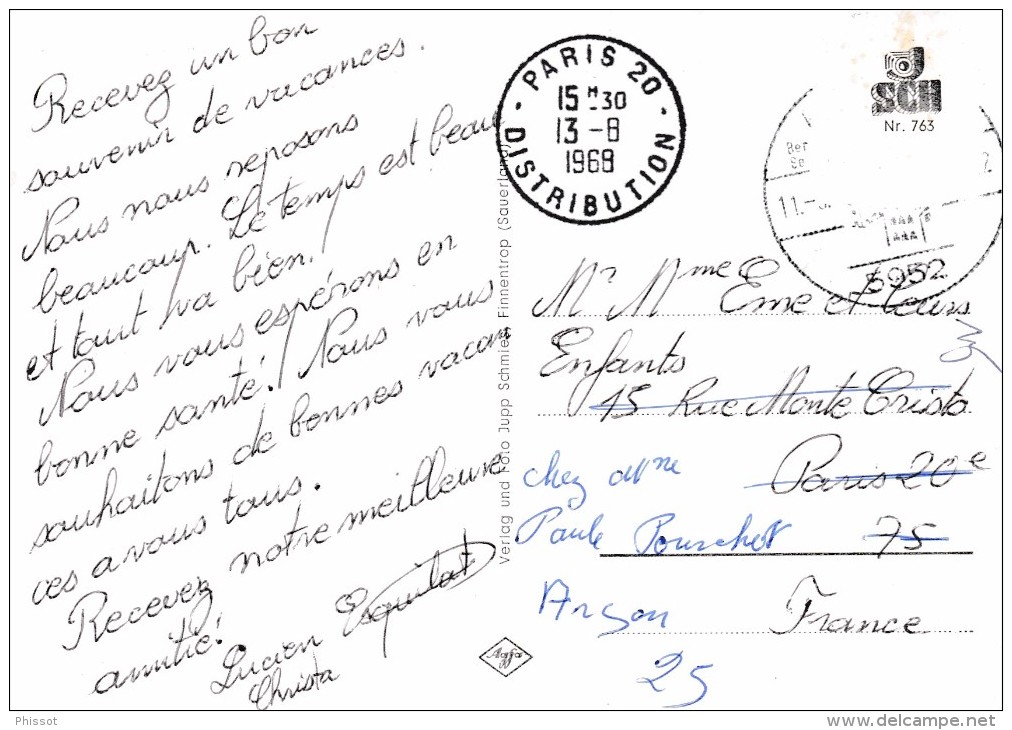 Recevez un bon
souvenir de vacances.
Nous nous reposons
beaucoup. Le temps est beau
et tout va bien!
Nous vous espérons en
bonne santé! Nous vous
souhaitons de bonnes vacan
ces a vous tous.
Recevez notre meilleure
amitié!
Lucien
Christa
PARIS 20
15 H 30
13 - 8
1968
DISTRIBUTION
SCH
Nr. 763
5952
Mr Mme Eme et leurs
Enfants
15 Rue Monte Cristo
Paris 20e
75
France
chez Mme
Paule Pourchet
25
Verlag und Foto Jupp Schmies, Finnentrop (Sauerland)
Agfa
Phissot
www.delcampe.net